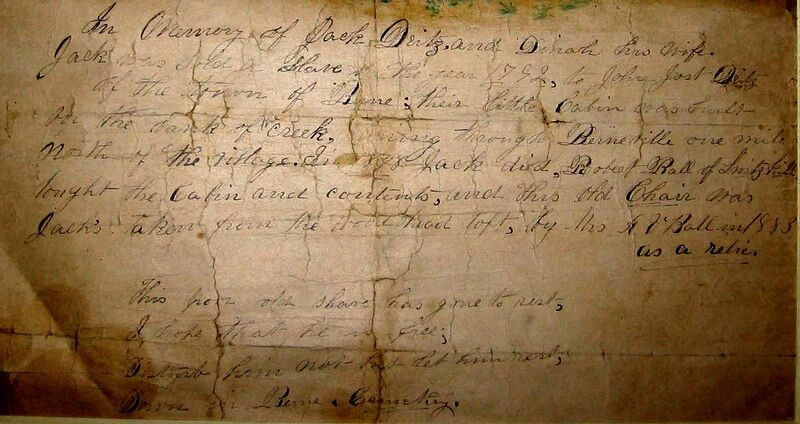 In Memory of Jack Deitz and Dinah his wife.
Jack was sold a Slave in the year 1792, to John Jost Deitz
of the Town of Berne; their little Cabin was built
on the bank of Creek, running through Berneville one mile
North of the village. In 1838 Jack died, Robert Ball of
bought the Cabin and contents, and this old Chair was
Jack's taken from the wood loft, by Mrs A V Ball in 1883
as a relic.
This poor old slave has gone to rest,
I hope that he is free;
Disturb him not but let him rest,
Down in Berne Cemetry.